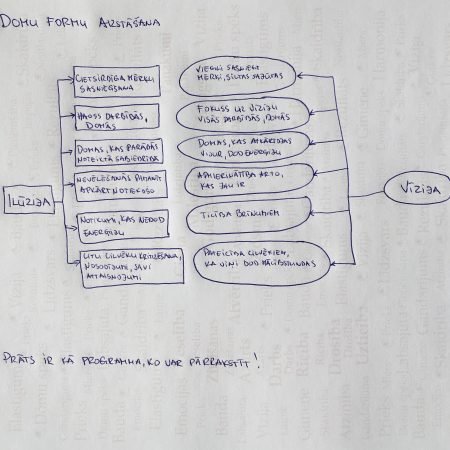 DOMU FORMU AIZSTĀŠANA
CIETSIRDĪGA MĒRĶU
SASNIEGŠANA
HAOSS DARBĪBĀS,
DOMĀS
DOMAS, KAS PARĀDĀS
NOTEIKTĀ SABIEDRĪBĀ
NEVĒLĒŠANĀS PAMANĪT
APKĀRT NOTIEKOŠO
ILŪZIJA
NOTIKUMI, KAS NEDOD
ENERĢIJU
CITU CILVĒKU KRITIZĒŠANA,
NOSODĪJUMI, SAVI
ATTAISNOJUMI
VIEGLI SASNIEGT
MĒRĶI, SILTAS SAJŪTAS
FOKUSS UZ VĪZIJU
VISĀS DARBĪBĀS, DOMĀS
DOMAS, KAS ATKĀRTOJAS
VISUR, DOD ENERĢIJU
APMIERINĀTĪBA AR TO,
KAS JAU IR
TICĪBA BRĪNUMIEM
PATEICĪBA CILVĒKIEM,
KA VIŅI DOD MĀCĪBSTUNDAS
VĪZIJA
PRĀTS IR KĀ PROGRAMMA, KO VAR PĀRRAKSTĪT!